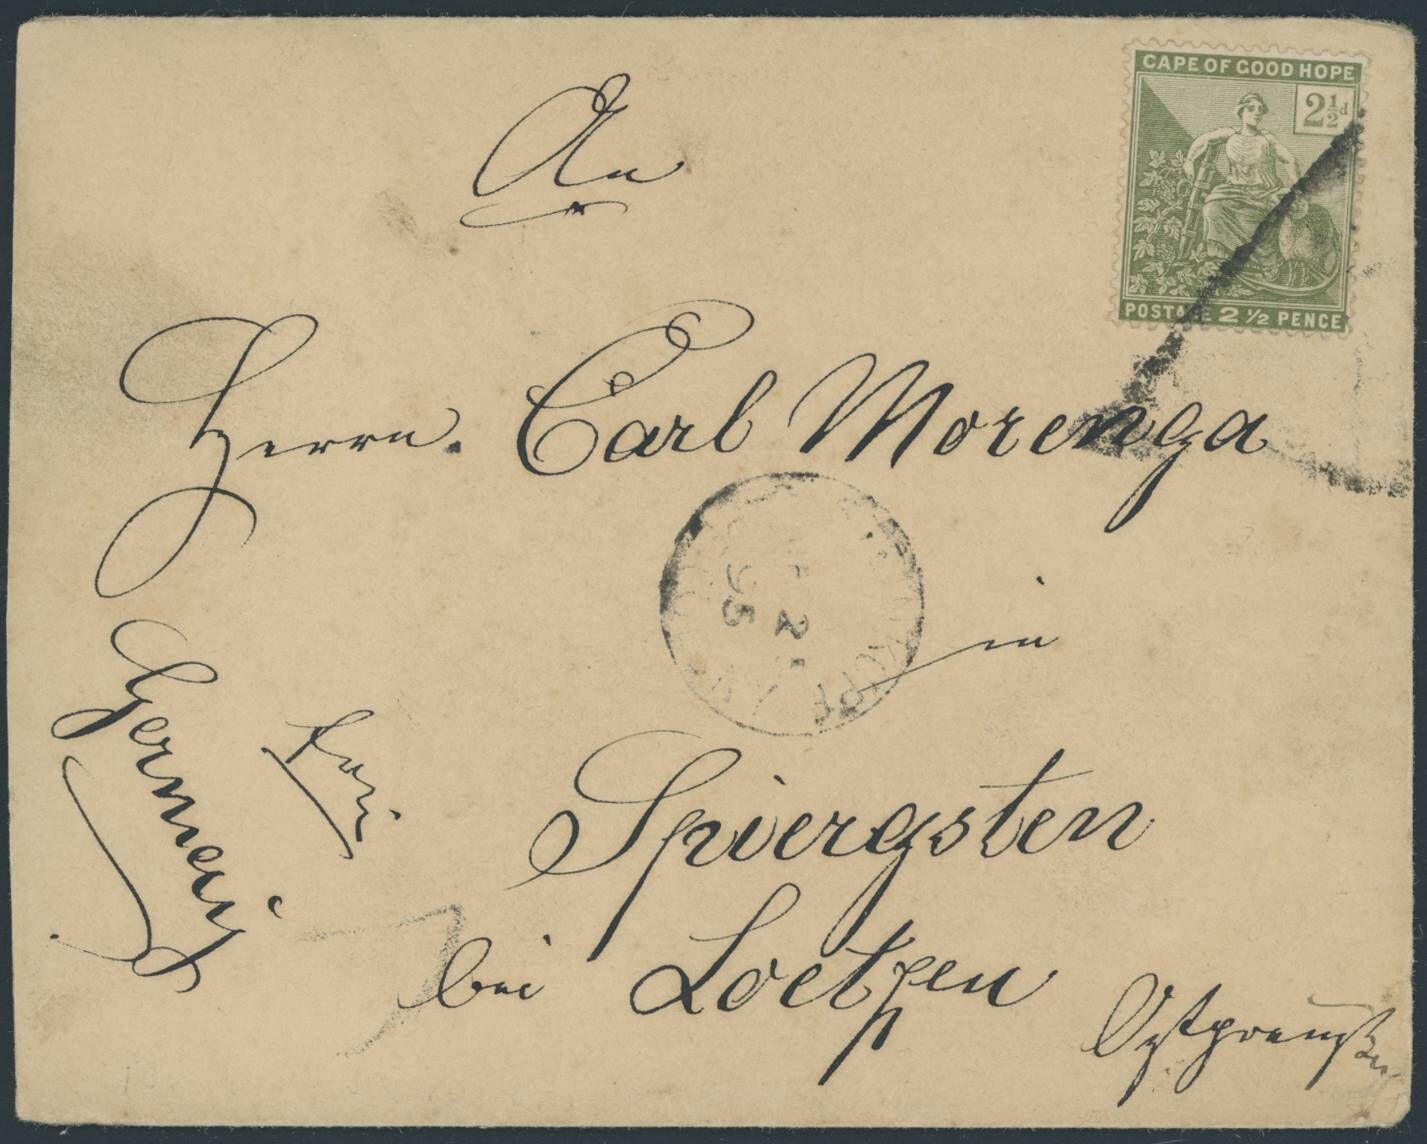 CAPE OF GOOD HOPE
2½d
POSTAGE 2 ½ PENCE
An
Herrn Carl Morenga
in
Spiergsten
bei Loetzen
Ostpreußen
Germany
2
95